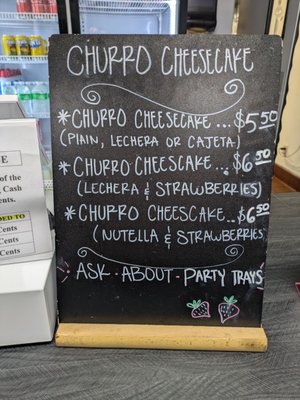 CHURRO CHEESECAKE
* CHURRO CHEESECAKE... $5.50
(PlAIN, LECHERA OR CAJETA)
* CHURRO CHEESCAKE... $6.50
(LECHERA & STRAWBERRIES)
* CHURRO CHEESCAKE.. $6.50
(NUTELLA & STRAWBERRIES
ASK · ABOUT - PARTY TRAYS
of the
Cash
ents.
DED TO
Cents
Cents
Cents